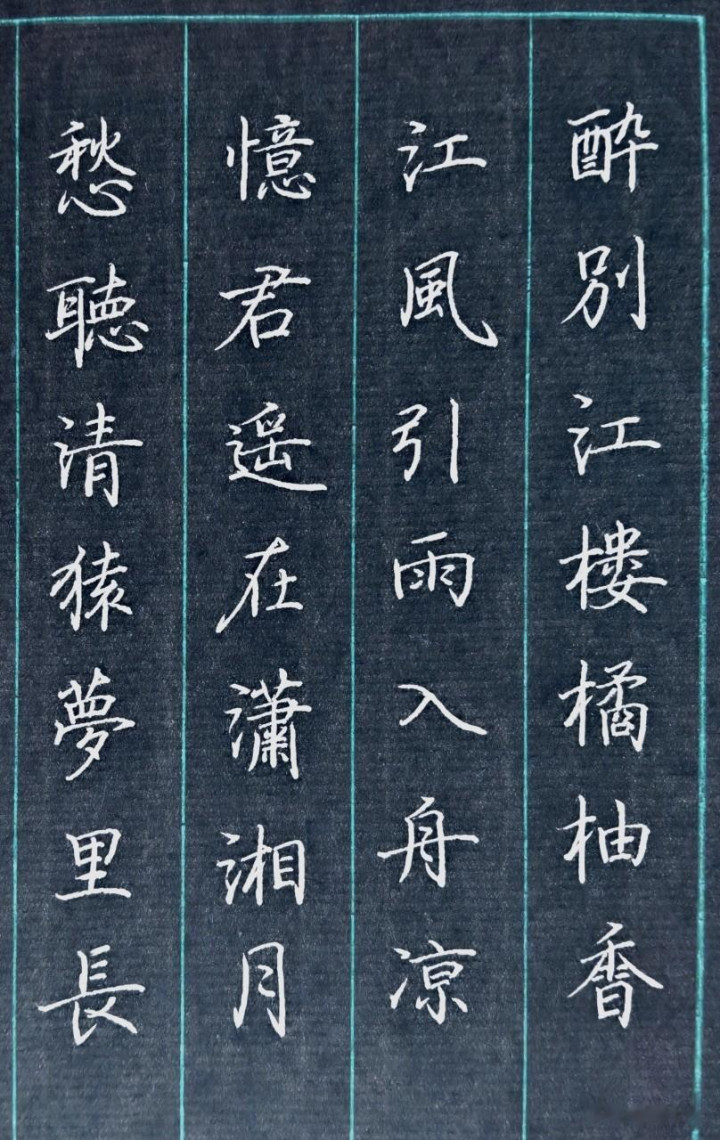 醉別江樓橘柚香
江風引雨入舟凉
憶君遥在瀟湘月
愁聽清猿夢里長